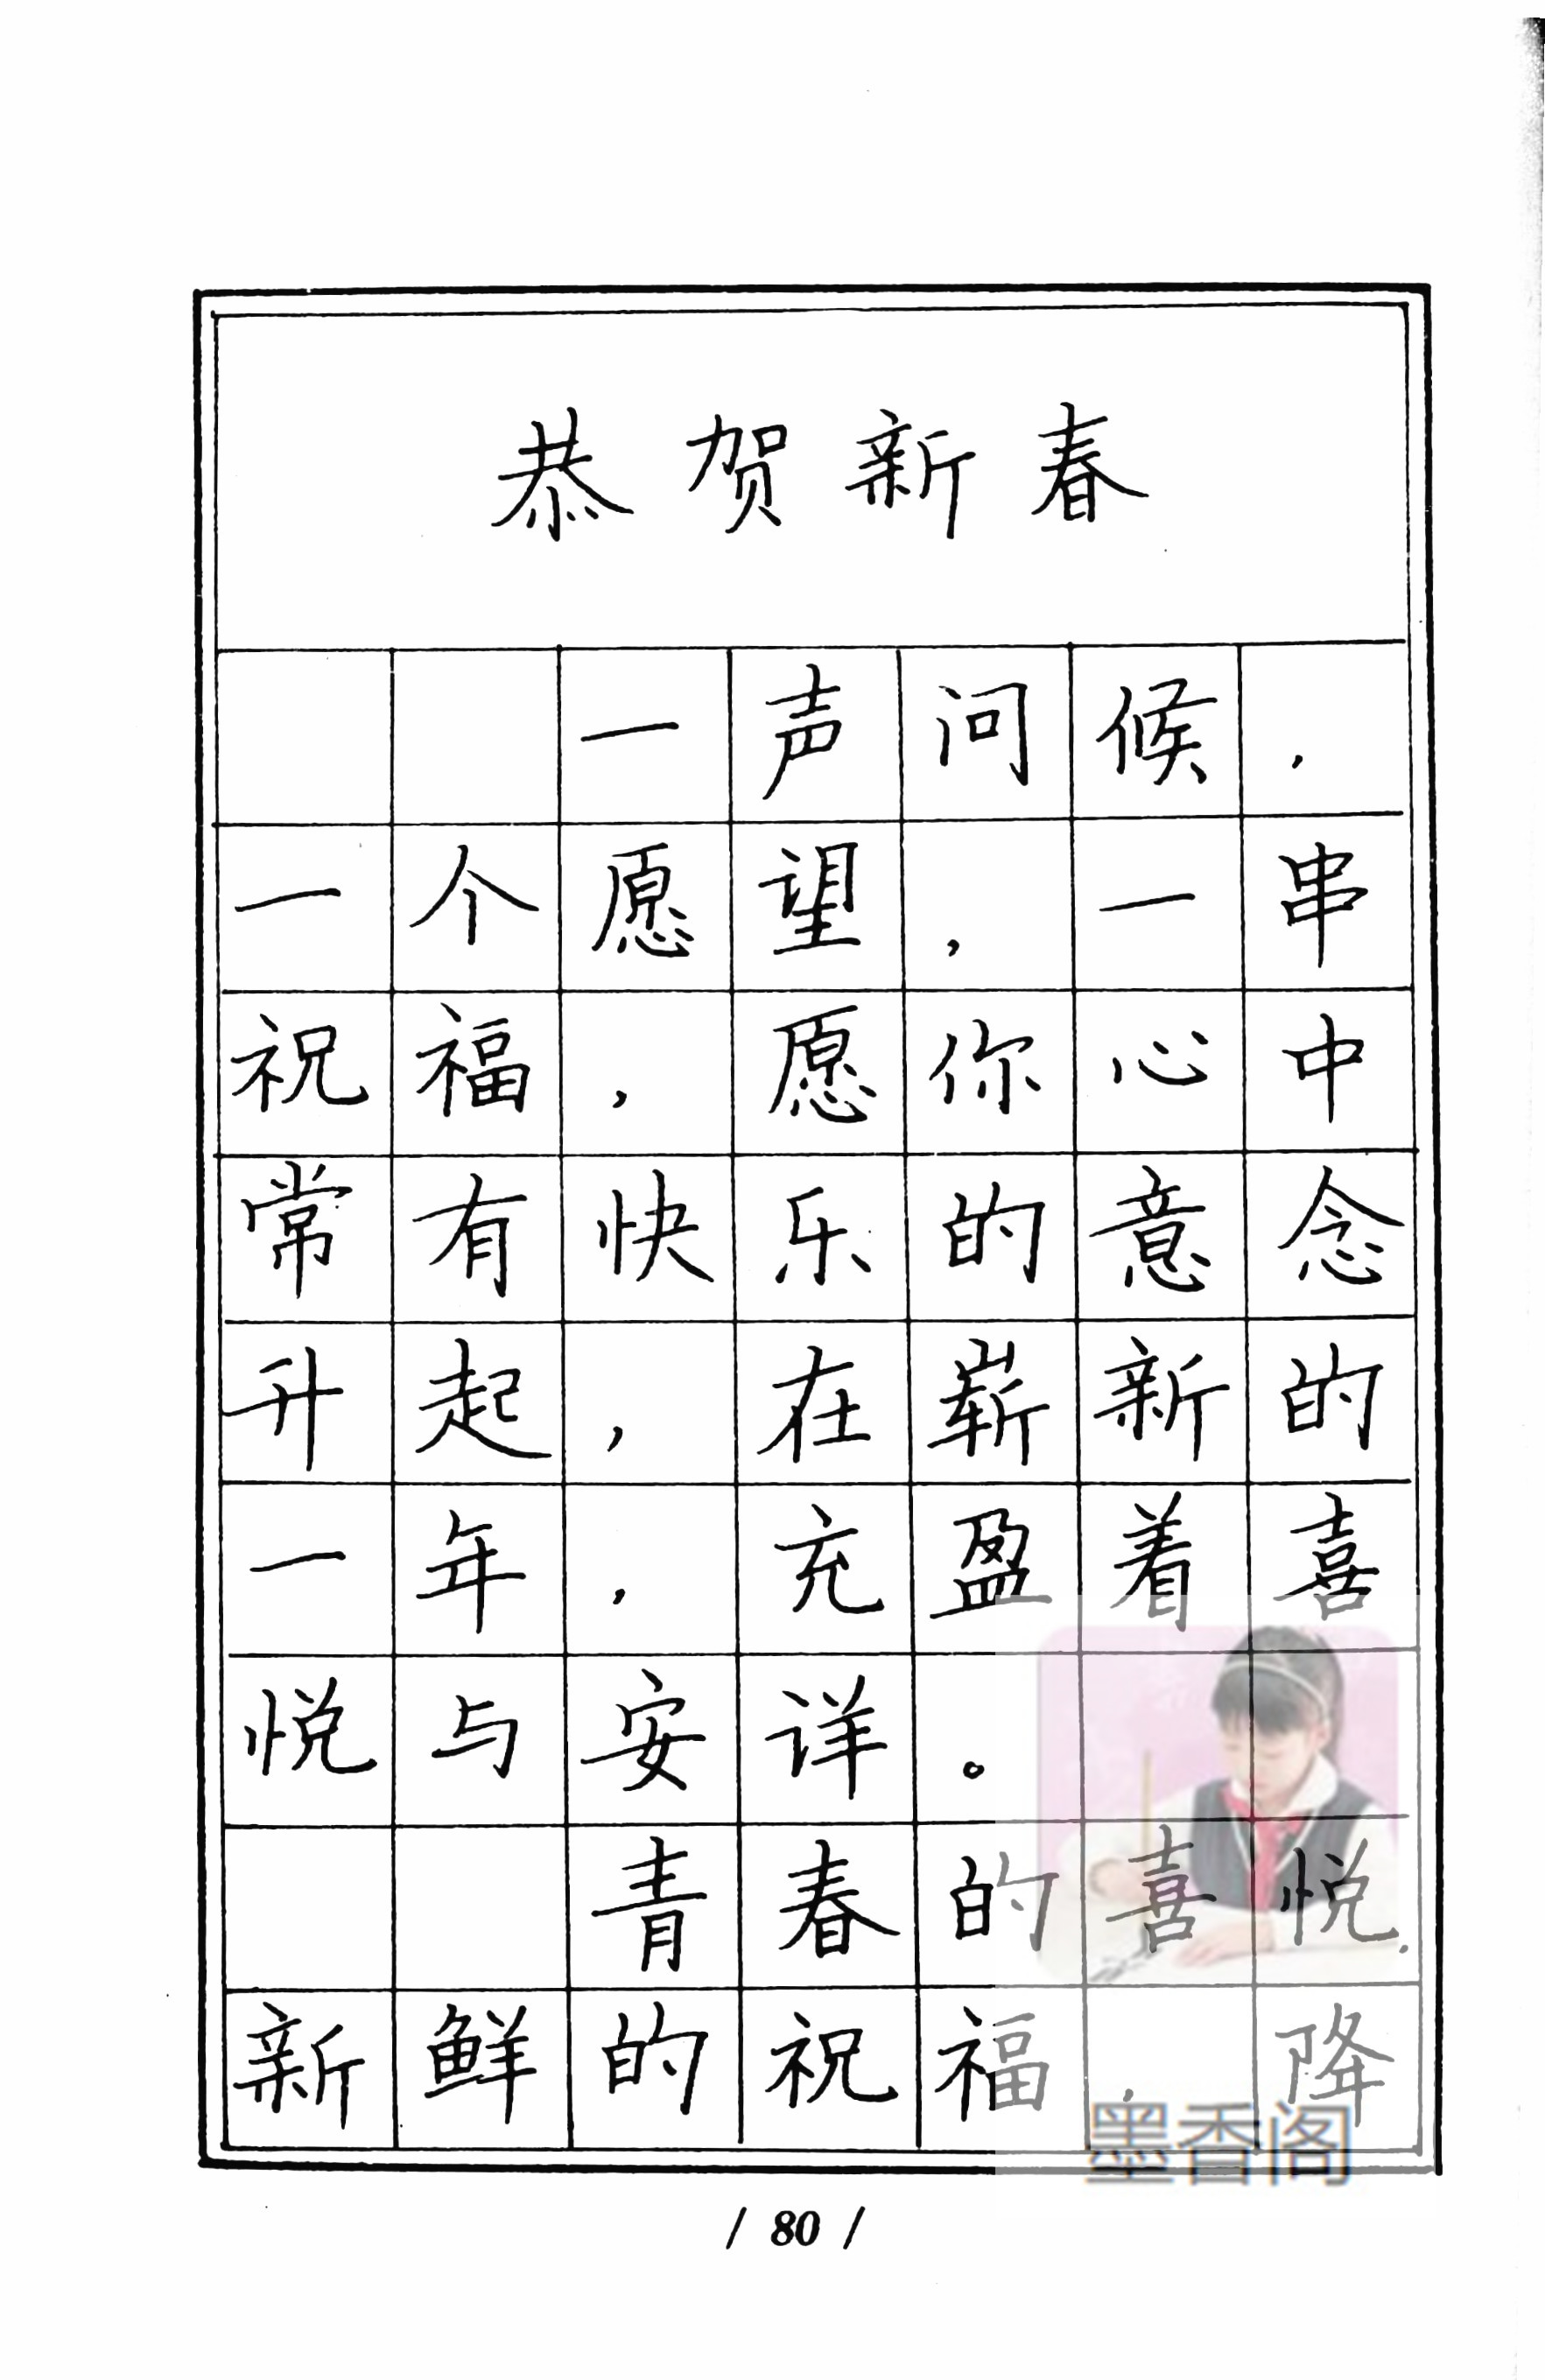 恭贺新春
一声问候，
一个愿望，一串
祝福，愿你心中
常有快乐的意念
升起，在崭新的
一年，充盈着喜
悦与安详。
青春的喜悦，
新鲜的祝福，降
墨香阁
/ 80 /